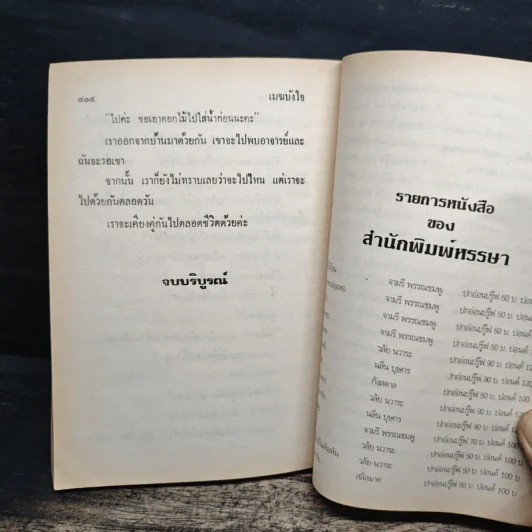 ๔๑๔ เมฆบังใจ
"ไปค่ะ ขอเอาดอกไม้ไปใส่น้ำก่อนนะคะ"
เราออกจากบ้านมาด้วยกัน เขาจะไปพบอาจารย์และ
ฉันจะรอเขา
จากนั้น เราก็ยังไม่ทราบเลยว่าจะไปไหน แต่เราจะ
ไปด้วยกันตลอดวัน
เราจะเคียงคู่กันไปตลอดชีวิตด้วยค่ะ
จบบริบูรณ์
รายการหนังสือ
ของ
สำนักพิมพ์หรรษา
จามรี พรรณชมพู ปกอ่อนปรู๊ฟ 50 บ. ปอนด์
จามรี พรรณชมพู ปกอ่อนปรู๊ฟ 50 บ. ปอนด์
จามรี พรรณชมพู ปกอ่อนปรู๊ฟ 50 บ. ปอนด์
วลัย นวาระ ปกอ่อนปรู๊ฟ 90 บ. ปอนด์
นลิน บุษกร ปกอ่อนปรู๊ฟ 90 บ. ปอนด์
กังสดาล ปกอ่อนปรู๊ฟ 50 บ. ปอนด์ 100
วลัย นวาระ ปกอ่อนปรู๊ฟ 90 บ. ปอนด์
นลิน บุษกร ปกอ่อนปรู๊ฟ 90 บ. ปอนด์
จามรี พรรณชมพู ปกอ่อนปรู๊ฟ 70 บ. ปอนด์ 100
วลัย นวาระ ปกอ่อนปรู๊ฟ 50 บ. ปอนด์ 100 บ
วลัย นวาระ ปกอ่อนปรู๊ฟ 50 บ. ปอนด์ 100 บ
ปกอ่อนปรู๊ฟ 50 บ. ปอนด์ 100 บ